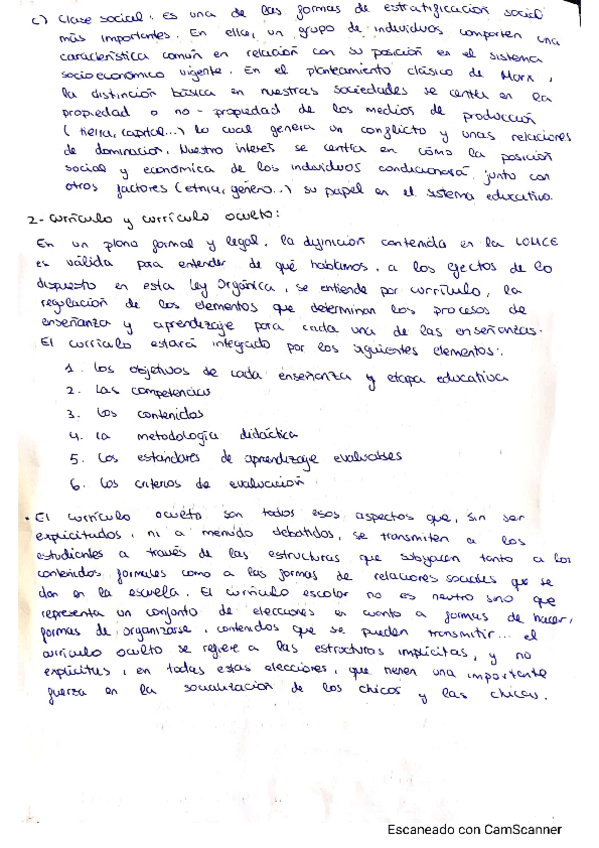 c) Clase social: es una de las formas de estratificación social
más importantes. En ella, un grupo de individuos comparten una
característica común en relación con su posición en el sistema
socioeconómico vigente. En el planteamiento clásico de Marx,
la distinción básica en nuestras sociedades se centra en la
propiedad o no-propiedad de los medios de producción
(tierra, capital...) lo cual genera un conflicto y unas relaciones
de dominación. Nuestro interés se centra en cómo la posición
social y económica de los individuos condicionará junto con
otros factores (etnia, género...) su papel en el sistema educativo.
2- Currículo y currículo oculto:
En un plano formal y legal, la definición contenida en la LOMCE
es válida para entender de qué hablamos, a los efectos de lo
dispuesto en esta Ley Orgánica, se entiende por currículo, la
regulación de los elementos que determinan los procesos de
enseñanza y aprendizaje para cada una de las enseñanzas.
El currículo estará integrado por los siguientes elementos:
1. Los objetivos de cada enseñanza y etapa educativa
2. Las competencias
3. Los contenidos
4. La metodología didáctica
5. Los estándares de aprendizaje evaluables
6. Los criterios de evaluación
• El currículo oculto son todos esos aspectos que, sin ser
explicitados, ni a menudo debatidos, se transmiten a los
estudiantes a través de las estructuras que subyacen tanto a los
contenidos formales como a las formas de relaciones sociales que se
dan en la escuela. El currículo escolar no es neutro sino que
representa un conjunto de elecciones en cuanto a formas de hacer,
formas de organizarse, contenidos que se pueden transmitir... el
currículo oculto se refiere a las estructuras implícitas, y no
explícitas, en todas estas elecciones, que tienen una importante
fuerza en la socialización de los chicos y las chicas.
Escaneado con CamScanner